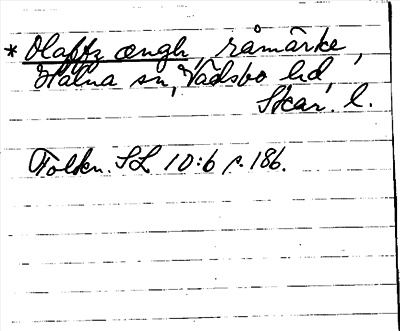 * Olaffz ængh, råmärke,
Halna sn, Vadsbo hd,
Skar. l.
Folkn. SL 10:6 p. 186.